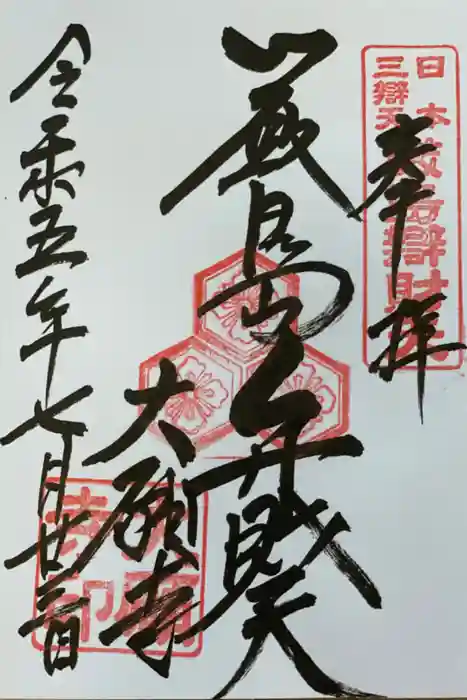 奉拝
日本
三辯天
厳島辯財天
厳島弁財天
大願寺
大願
寺印
令和五年七月廿三日